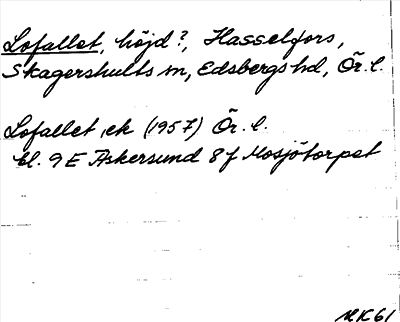 Lofallet, höjd?, Hasselfors,
Skagershults sn, Edsbergs hd, Ör. l.
Lofallet, ek (1957) Ör. l.
bl. 9 E Askersund 8 f Mosjötorpet
RK61